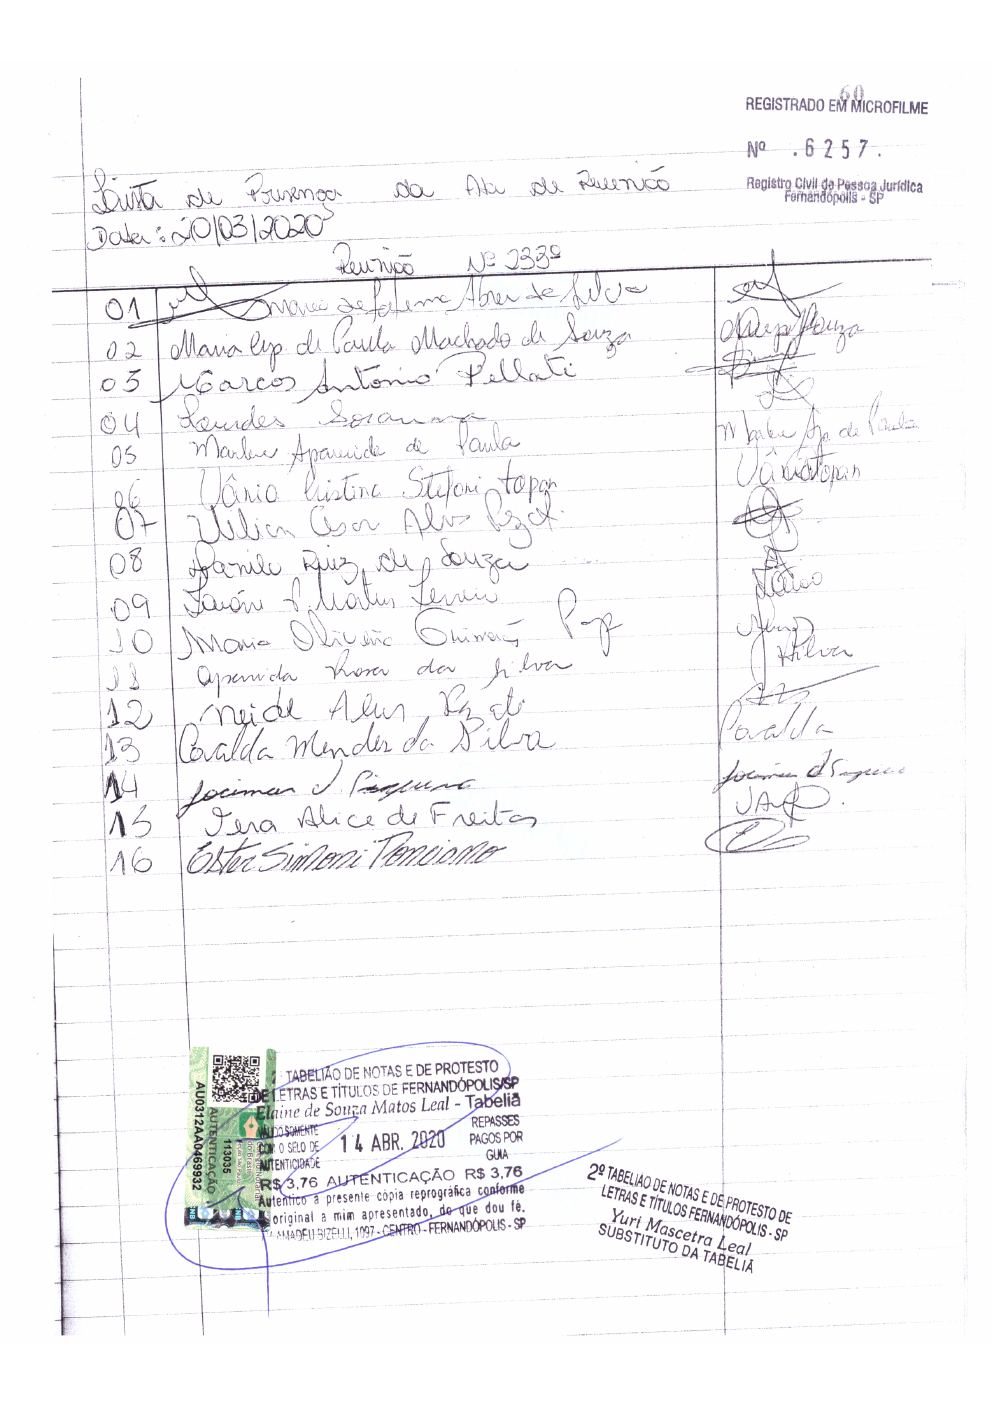 60
REGISTRADO EM MICROFILME
Nº .6257.
Registro Civil de Pessoa Jurídica
Fernandópolis - SP
Lista de Presença da Ata de Reunião
Data: 20/03/2020
Reunião Nº 233º
01 Maria de Fatima Abreu da Silva
02 Maria Ap. de Paula Machado de Souza
03 Marcos Antônio Pellati
04 Lourdes
05 Marlene Aparecida de Paula Marlene Ap. de Paula
06 Vânia Cristina Stefani Topan
07 Cesar Alves
08 Danilo Ruiz de Souza
09
10 Maria Oliveira Guimarães
11 Aparecida Rosa da Silva Silva
12 Neide Alves
13 Covalda Mendes da Silva Covalda
14
15 Tera Alice de Freitas JAF
16 Ester Simoni Ponciano
TABELIÃO DE NOTAS E DE PROTESTO
DE LETRAS E TÍTULOS DE FERNANDÓPOLIS/SP
Elaine de Souza Matos Leal - Tabeliã
VÁLIDO SOMENTE
COM O SELO DE
AUTENTICIDADE
14 ABR. 2020
REPASSES
PAGOS POR
GUIA
R$ 3,76 AUTENTICAÇÃO R$ 3,76
Autentico a presente cópia reprográfica conforme
original a mim apresentado, do que dou fé.
AMADEU BIZELLI, 1097 - CENTRO - FERNANDÓPOLIS - SP
AU0312AA0469932
AUTENTICAÇÃO
113035
2º TABELIÃO DE NOTAS E DE PROTESTO DE
LETRAS E TÍTULOS FERNANDÓPOLIS - SP
Yuri Mascetra Leal
SUBSTITUTO DA TABELIÃ